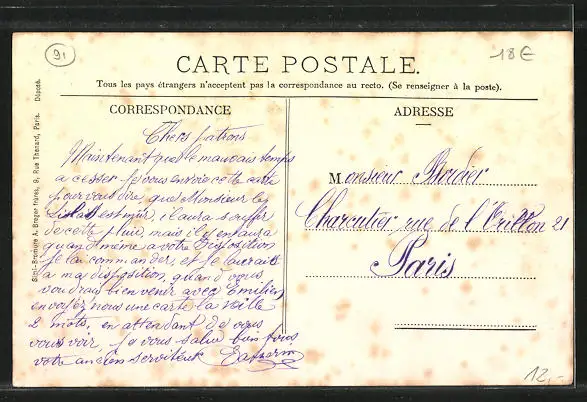 91
18€
CARTE POSTALE.
Tous les pays étrangers n'acceptent pas la correspondance au recto. (Se renseigner à la poste).
CORRESPONDANCE
ADRESSE
Chers patrons
Maintenant que le mauvais temps
a cesser je vous envoie cette carte
pour vous dire que Monsieur le
est mur, il aura souffer
de cette pluie, mais il y en aura
quand même a votre disposition
je lai commander, et je laurait
a ma disposition, quand vous
voudrais bien venir avec Emilien
envoyez nous une carte la veille
2 mots, en attendant de vous
vous voir je vous salue bien tous
votre ancien serviteur
Monsieur
Charcutier rue de l'Orillon 21
Paris
Simi-Bromure A. Breger frères, 9, Rue Thénard, Paris. Déposé.
12,-